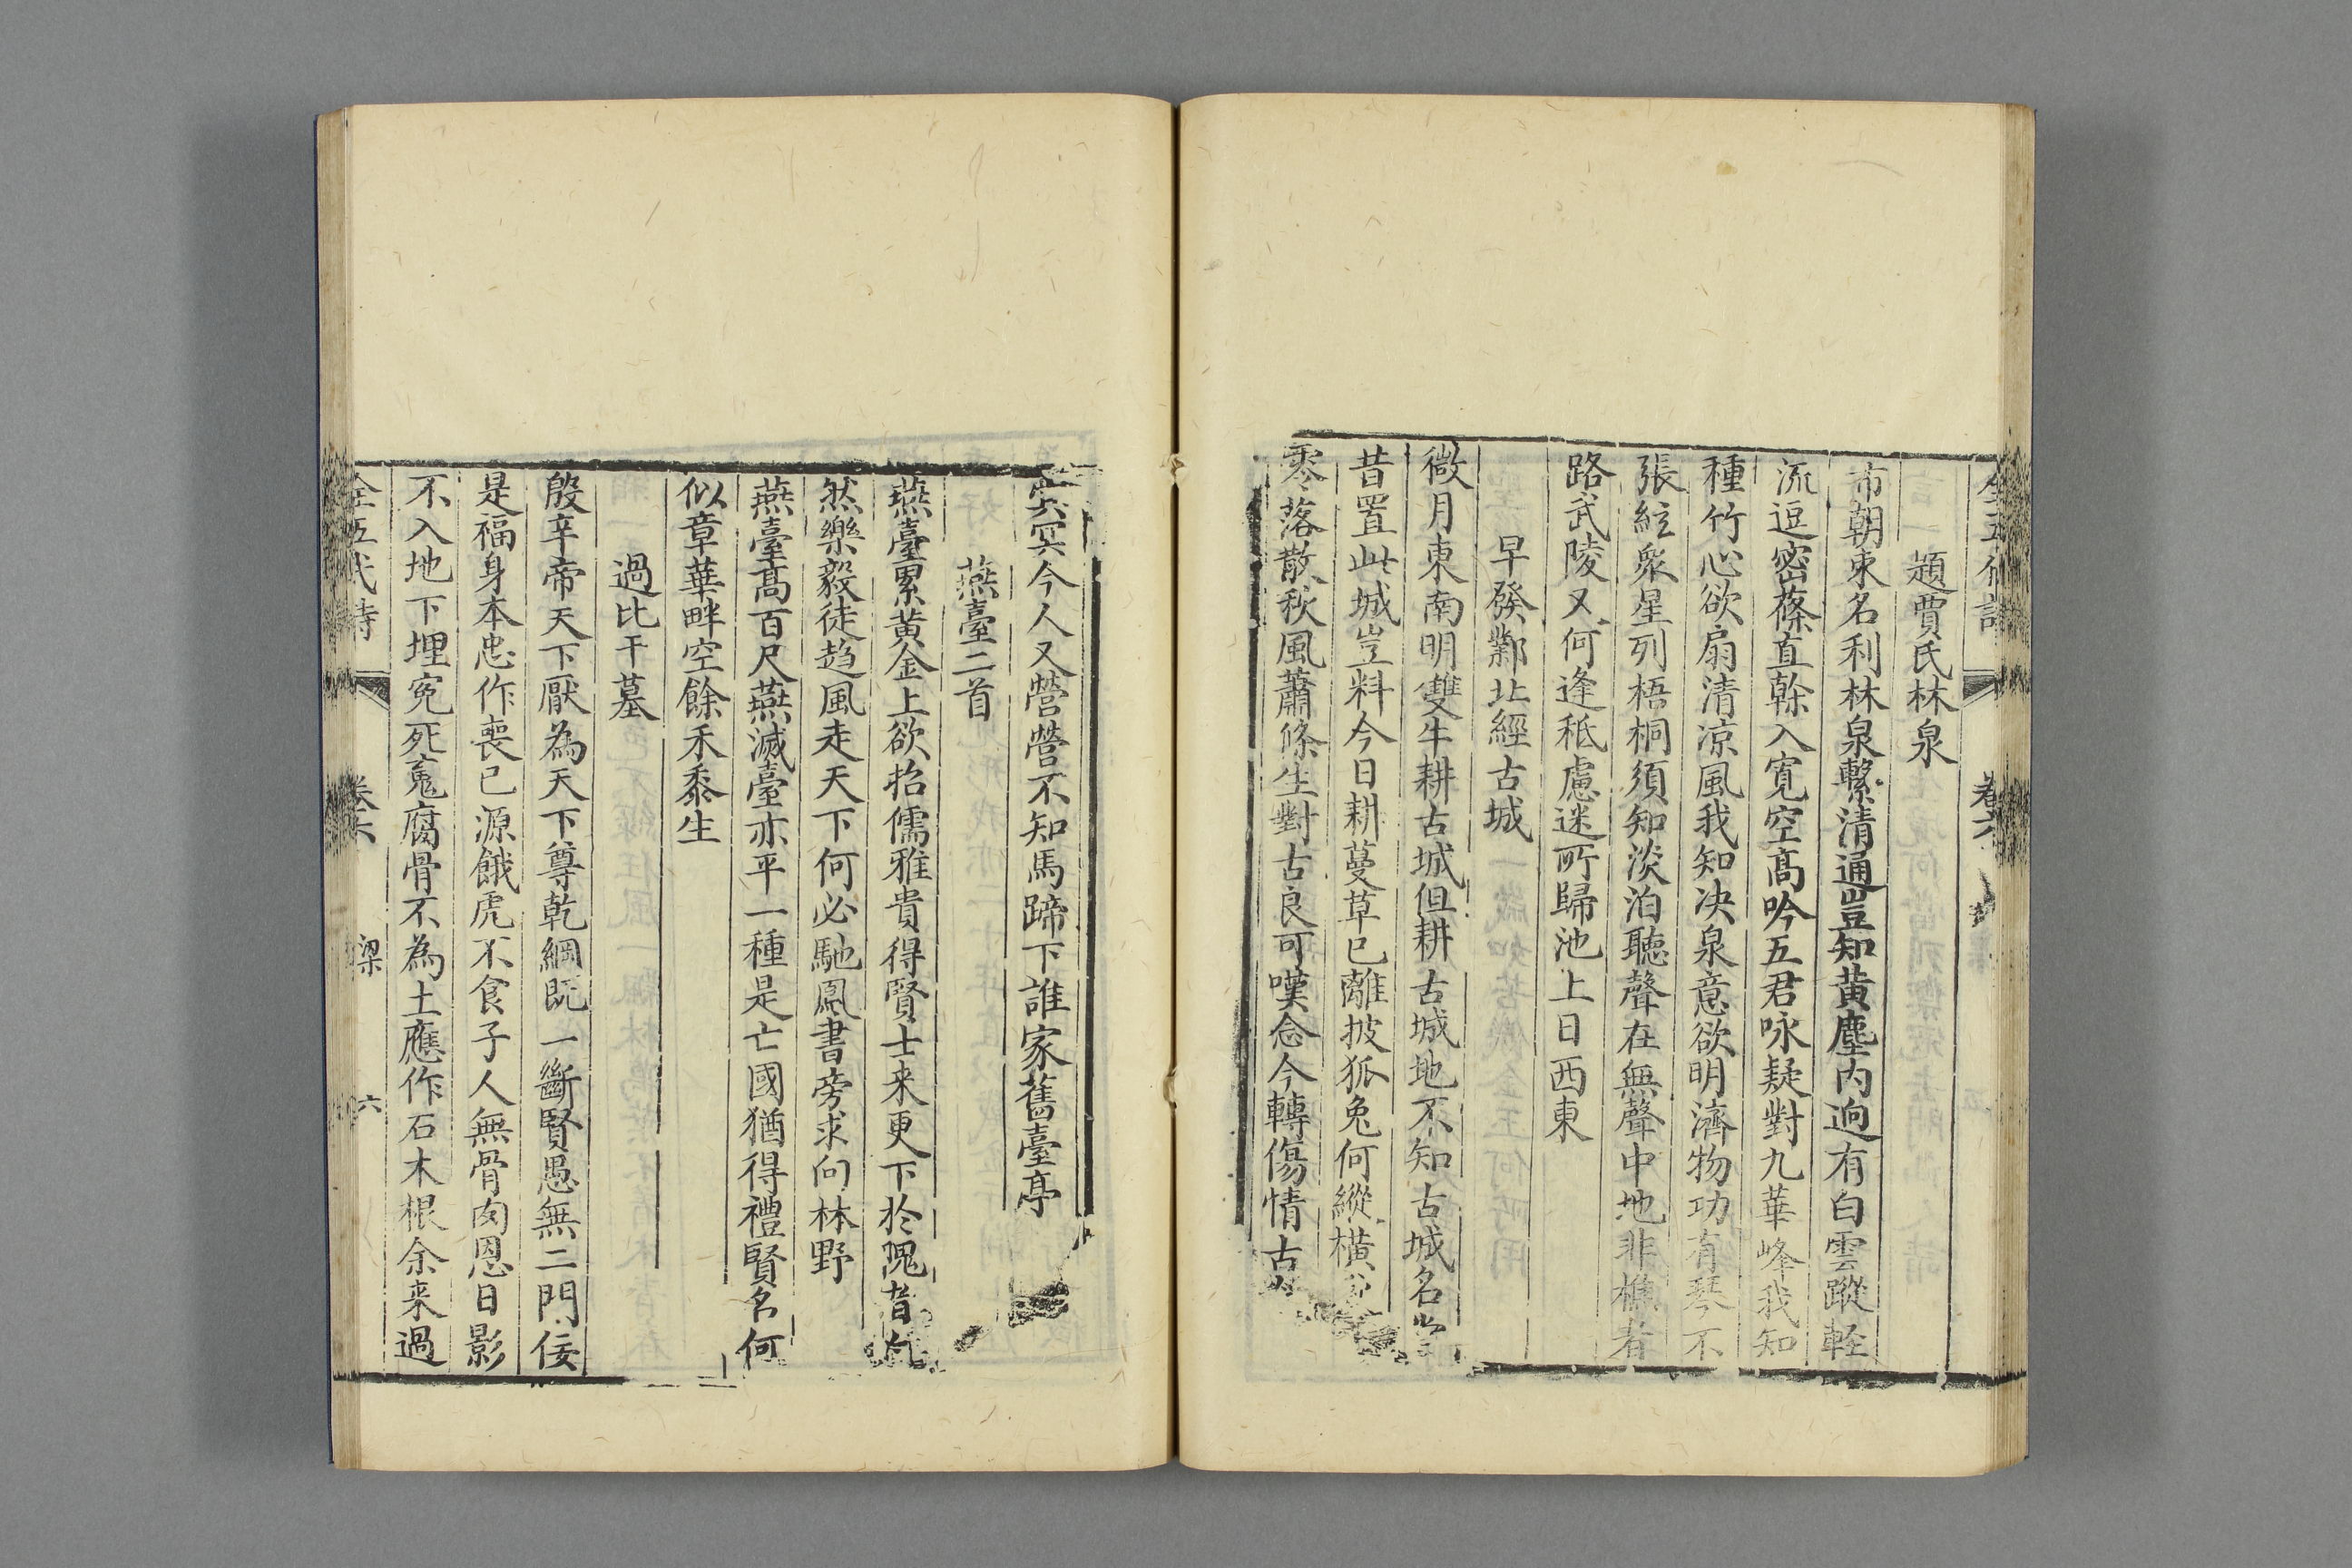 題賈氏林泉
市朝束名利林泉繫清通豈知黃塵內迥有白雲蹤輕
流逗密蓧直榦入寬空高吟五君咏疑對九華峰我知
種竹心欲扇清涼風我知決泉意欲明濟物功有琴不
張絃衆星列梧桐須知淡泊聽聲在無聲中地非樵者
路武陵又何逢秪慮迷所歸池上日西東
早發鄴北經古城
微月東南明雙牛耕古城但耕古城地不知古城名當
昔置此城豈料今日耕蔓草已離披狐兔何縱橫
零落散秋風蕭條生對古良可嘆念今轉傷情古
冥冥今人又營營不知馬蹄下誰家舊臺亭
燕臺二首
燕臺累黃金上欲招儒雅貴得賢士来更下於隗者
然樂毅徒趋風走天下何必馳鳳書旁求向林野
燕臺高百尺燕滅臺亦平一種是亡國猶得禮賢名何
似章華畔空餘禾黍生
過比干墓
殷辛帝天下厭為天下尊乾綱既一斷賢愚無二門佞
是福身本忠作喪己源餓虎不食子人無骨肉恩日影
不入地下埋冤死鬼腐骨不為土應作石木根余来過
全五代詩 卷六 梁 六